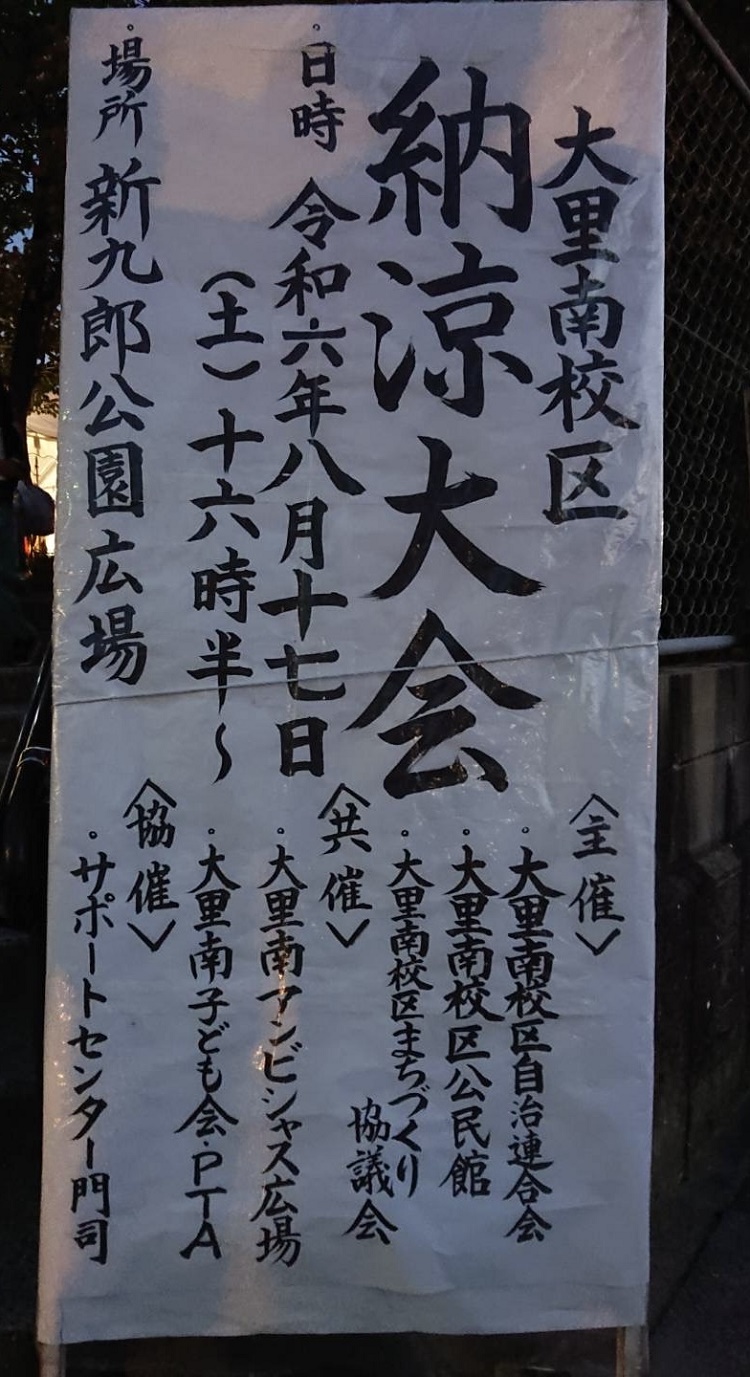 大里南校区
納涼大会
・日時 令和六年八月十七日
(土)十六時半〜
・場所 新九郎公園広場
〈主催〉
・大里南校区自治連合会
・大里南校区公民館
・大里南校区まちづくり
協議会
〈共催〉
・大里南アンビシャス広場
・大里南子ども会・PTA
〈協催〉
・サポートセンター門司